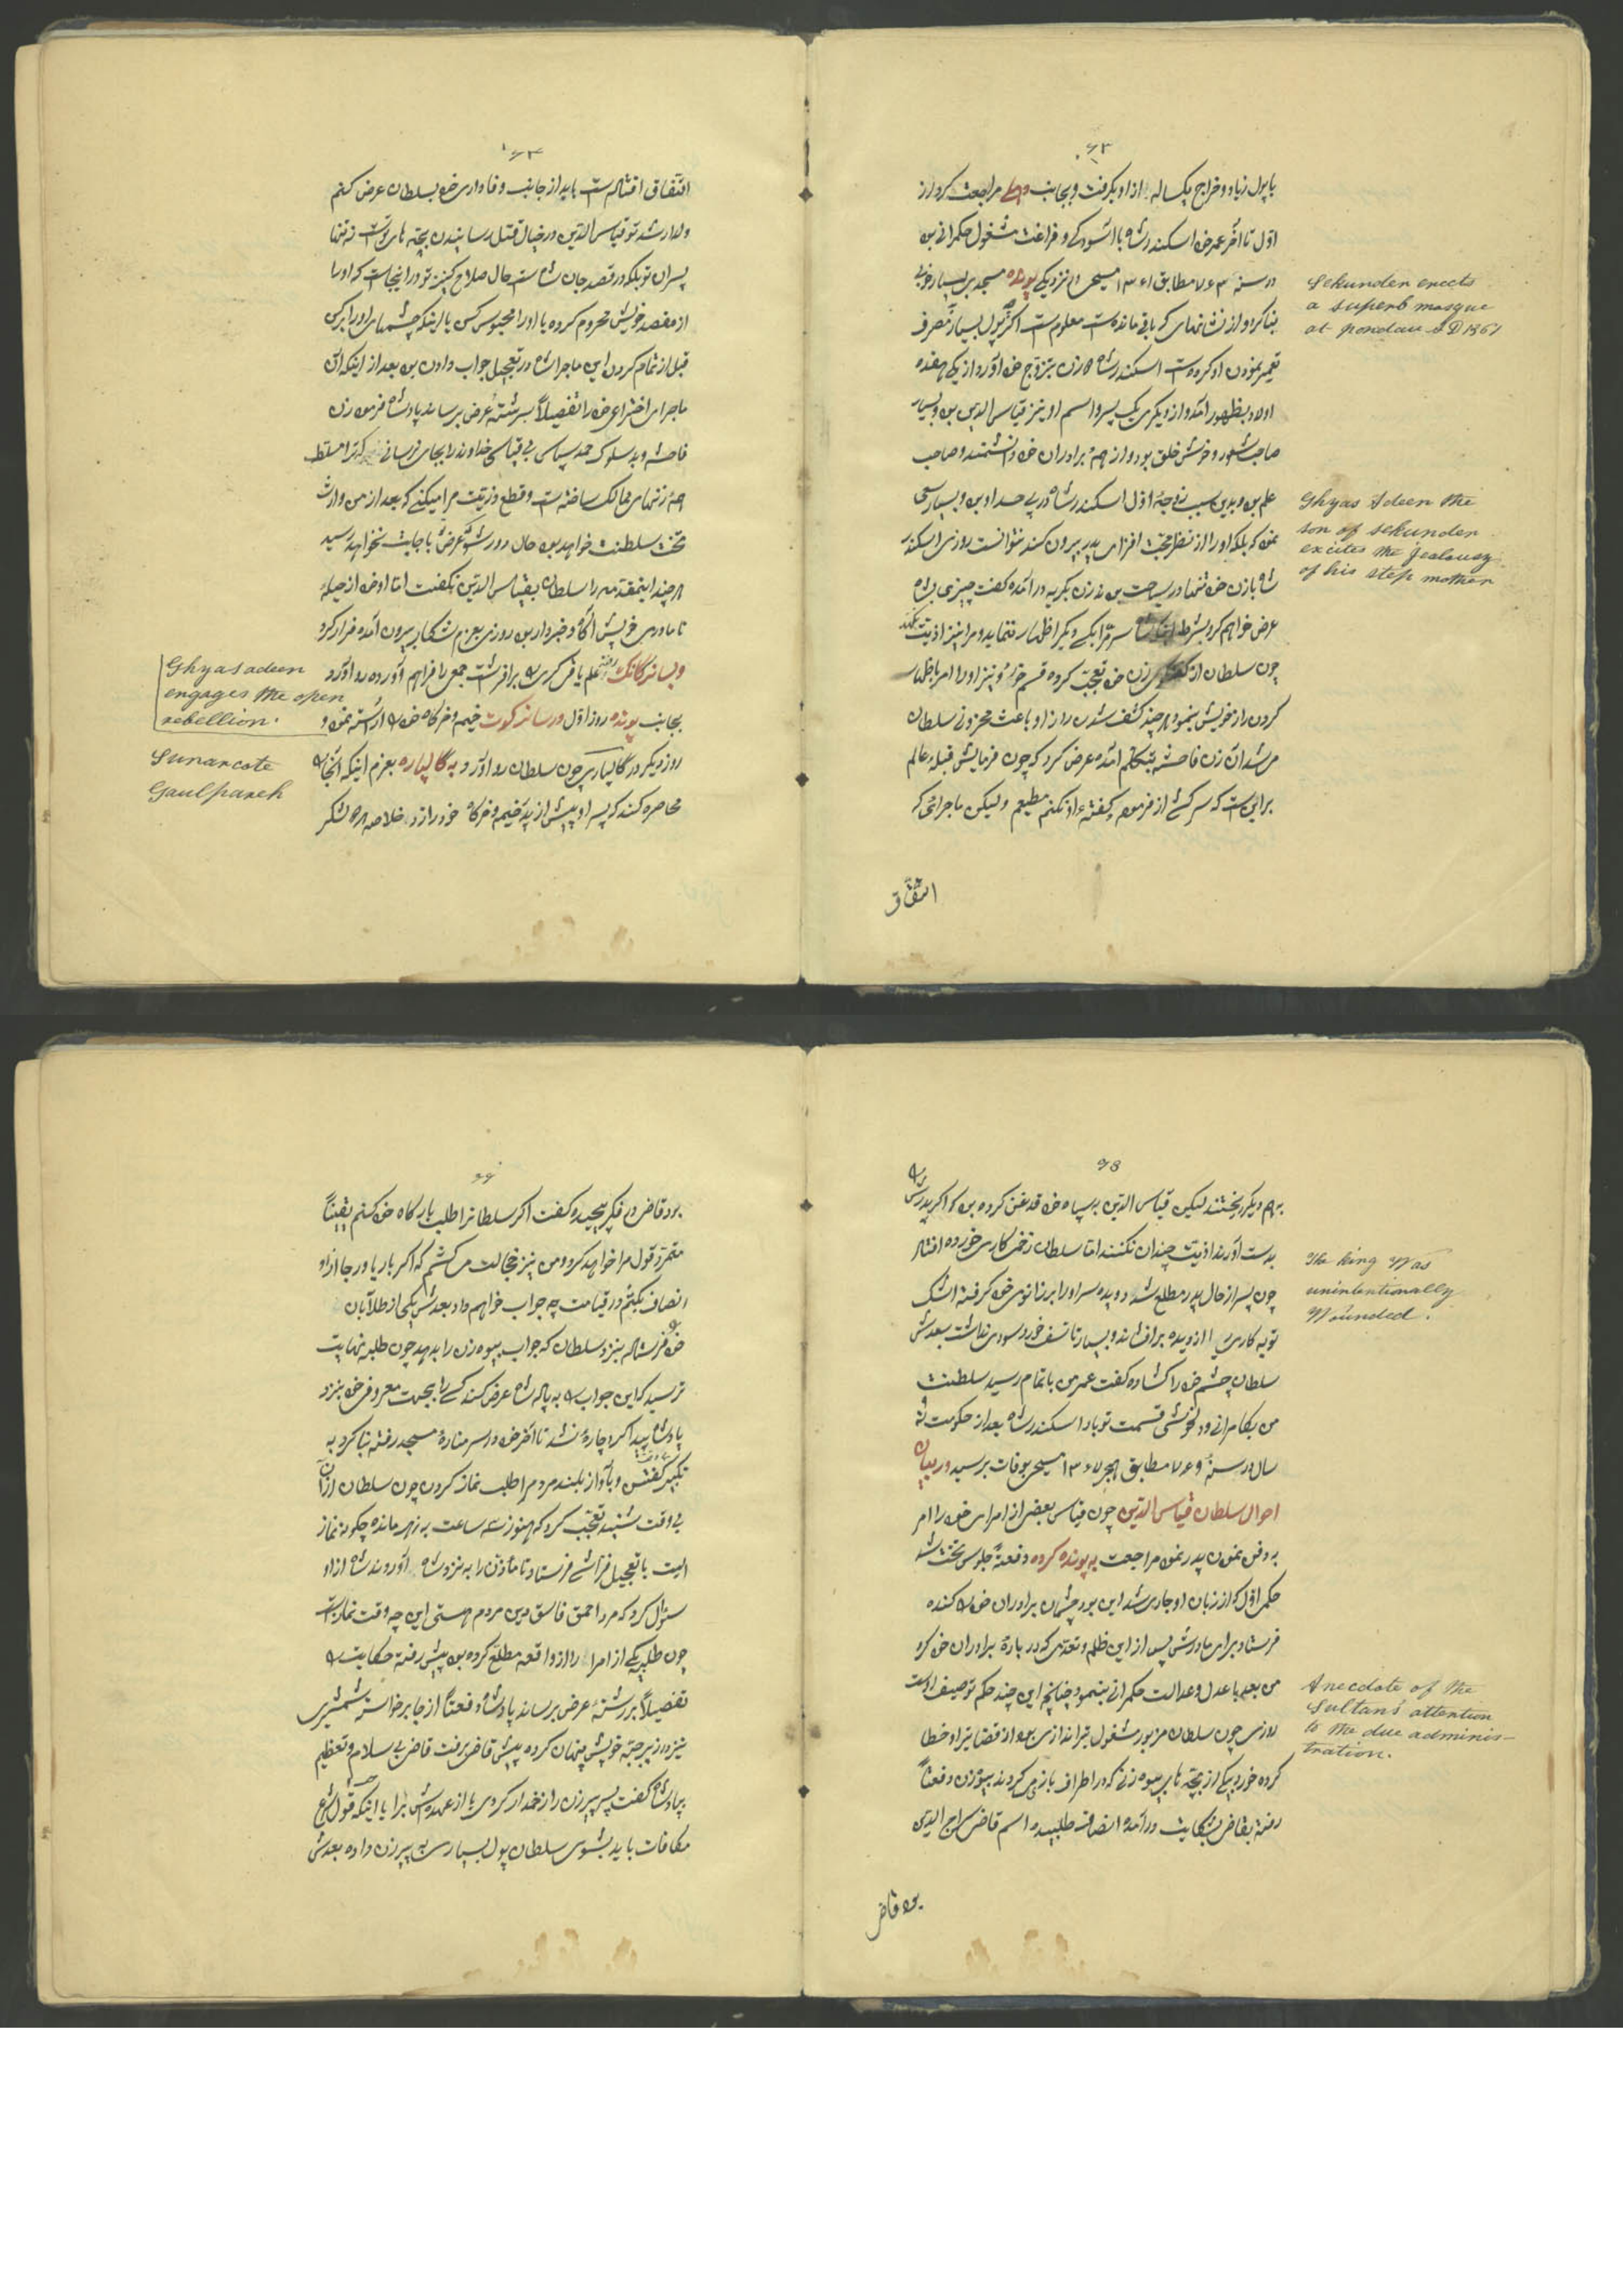 ۶۳
با پول زیاد و خراج یکساله از او بگرفت و بجانب دهلی مراجعت کرد از
اوّل تا آخر عمر خود اسکندر شاه با آسودگی و فراغت مشغول حکمرانی بود
در سنه ۷۶۳ مطابق ۱۳۶۱ مسیحی در نزدیکی پونده مسجد بسیار خوبی
بنا کرد و از نشانهای که باقی مانده است معلوم است که پول بسیار مصرف
تعمیر نمودن او کرده است اسکندر شاه دو زن بتزوج خود آورد از یکی هفده
اولاد بظهور آمد و از دیگری یک پسر و اسم او نیز قیاس الدین بود و بسیار
صاحب شعور و خوش خلق بود و از همه برادران خود دانشمند و صاحب
علم بود و بدین سبب زوجهٔ اوّل اسکندر شاه در پی حسد او بود و بسیار سعی
نمود که بلکه او را از نظر محبّت افزای پدر بیرون کند نتوانست روزی اسکندر
شاه با زن خود تنها در سیاحت بود زن بگریه در آمده گفت چیزی بشاه
عرض خواهم کرد بشرط اینکه شاه سر مرا بکسی دیگر اظهار ننماید و مرا نیز اذیت نکند
چون سلطان از گفتگوی زن خود تعجب کرده قسم خورد و نیز او را امر باظهار
کردن راز خویش بنمود هر چند کشف شدن راز او باعث محزونی سلطان
می شد آن زن فاحشه بتکلم آمده عرض کرد که چون فرمایش قبلهٔ عالم
بر این است که سرکشی از فرموده و گفتهٔ او نکنم مطیعم ولیکن ماجرائی که
اتّفاق
Sekunder erects
a superb mosque
at pondau A D 1361
Ghyas Adeen the
son of sekunder
excites the Jealousy
of his step mother
۶۴
اتّفاق افتاده است باید از جانب وفاداری خود بسلطان عرض کنم
ولد ارشد تو قیاس الدّین در خیال قتل رسانیدن بچّه های تو است نه تنها
پسران تو بلکه در قصد جان شاه است حال صلاح کنیز تو در اینجاست که او را
از مقصد خویش محروم کرده یا او را محبوس کن یا اینکه چشمهای او را بر کن
قبل از تمام کردن این ماجرا شاه در تعجیل جواب دادن بود بعد از اینکه آن
ماجرای اختراعی خود را تفصیلاً برشتهٔ عرض برساند پادشاه فرمود زن
فاحشه و بد سلوک حمد سپاس بی قیاس خداوند را بجای نرسانی که ترا مسلّط
همه زنهای ممالک ساخته است و قطع ذرّیّت مرا میکنی که بعد از من وارث
تخت سلطنت خواهد بود حال دور شو که عرض تو باجابت نخواهد رسید
هر چند اینمقدمه را سلطان بقیاس الدّین نگفت امّا او خود از حیلهٔ
نامادری خویش آگاه و خبردار بود روزی بعزم شکار بیرون آمده فرار کرد
و بسانرکانک رفته علم یاغی گری را برافراشت جمعی را فراهم آورده رو آورد
بجانب پونده روز اوّل در سانرکوت خیمه و خرگاه خود را آراسته نمود و
روز دیگر در گالپاره چون سلطان رو آورد به گالپاره بعزم اینکه آنجا را
محاصره کند که پسر او پیش از پدر خیمه و خرگاه خود را زد خلاصه هر دو لشکر
Ghyasadeen
engages the open
rebellion.
Sunarcote
Gaulpareh
۶۵
به هم دیگر ریختند لیکن قیاس الدّین به سپاه خود قدغن کرده بود که اگر پدرش را
بدست آورند اذیّت چندان نکنند امّا سلطان زخم کاری خورده افتاد
چون پسر از حال پدر مطّلع شد دویده سر او را بر زانوی خود گرفته اشک
توبه کاری را از دیده برافشاند و بسیار تأسف خورد سودی نداشت بعدش
سلطان چشم خود را گشاده گفت عمر من باتمام رسید سلطنت
من بکامرانی و دلخوشی قسمت تو باد اسکندر شاه بعد از حکومت نه
سال در سنهٔ ۷۶۹ مطابق هجری ۱۳۶۷ مسیحی بوفات برسید در بیان
احوال سلطان قیاس الدّین چون قیاس بعضی از امرای خود را امر
به دفن نمودن پدر نمود مراجعت به پونده کرده دفعةً جلوس تخت شد
حکم اوّل که از زبان او جاری شد این بود چشمان برادران خود را کنده
فرستاد برای مادرش پس از این ظلم و تعدّی که در بارهٔ برادران خود کرد
من بعد با عدل و عدالت حکمرانی بنمود چنانچه این چند حکم توصیف اوست
روزی چون سلطان مزبور مشغول تیراندازی بود از قضا تیر او خطا
کرده خورد بیکی از بچّه های بیوه زنی که در اطراف بازی می کردند بیوه زن دفعتاً
رفته بقاضی شکایت در آمده انصاف طلبید و اسم قاضی سراج الدین
بود قاضی
The king was
unintentionally
Wounded.
Anecdote of the
Sultan's attention
to the due adminis-
tration.
۶۶
بود قاضی در فکر پیچید و گفت اگر سلطانرا طلب بارگاه خود کنم یقیناً
متمرّد قول مرا خواهد کرد و من نیز خجالت می کشم که اگر بار یاور جا از او
انصاف نکنم در قیامت چه جواب خواهم داد بعدش یکی از طلّابان
خود را فرستاد بنزد سلطان که جواب بیوه زن را بدهد چون طلبه نهایت
ترسید که این جواب را به پادشاه عرض کند کسی را بجهت معروفی خود بنزد
پادشاه پیدا کرد چاره نشد تا آخر خود در سر منارهٔ مسجد رفته بنا کرد به
تکبیر گفتن و بآواز بلند مردم را طلب نماز کردن چون سلطان اذان
بی وقت شنید تعجّب کرد که هنوز سه ساعت به ظهر مانده چگونه نماز
است با تعجیل فرّاشی فرستاد تا مأذن را به نزد شاه آوردند شاه از او
سئوال کرد که مرد احمق فاسق دین مردم هستی این چه وقت نماز است
چون طلبه یکی از امرا را از واقعه مطّلع کرده بود پیش رفته حکایت را
تفصیلاً برشتهٔ عرض برساند پادشاه دفعتاً از جا برخواسته شمشیری
نیز در زیر جبّه خویش پنهان کرده پیش قاضی برفت قاضی بی سلام و تعظیم
بپادشاه گفت پسر پیرزن را زخمدار کردی یا از عهده اش برآ یا اینکه بقول شرع
مکافات باید بشوی سلطان پول بسیاری به پیرزن داده بعدش